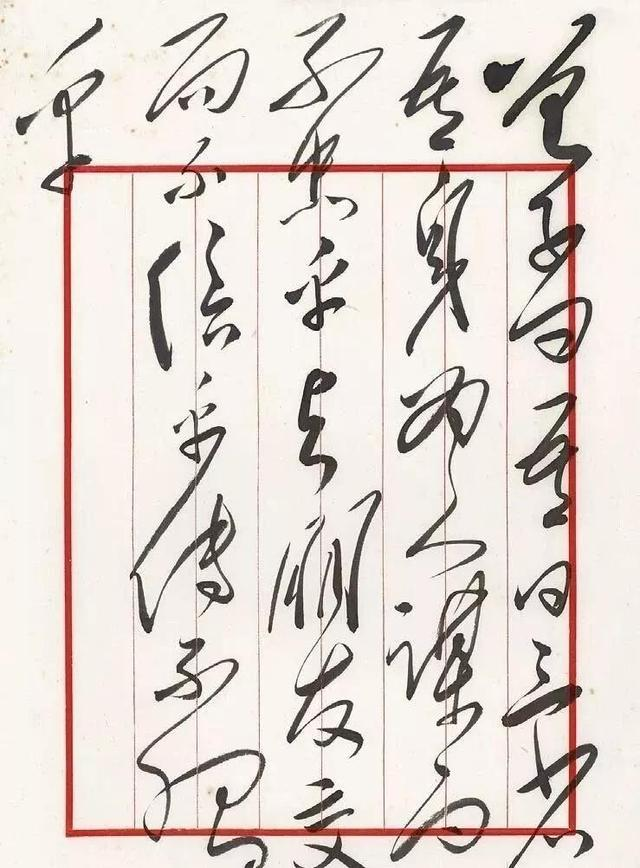 曾子曰吾日三省
吾身為人謀而
不忠乎與朋友交
而不信乎傳不習
乎